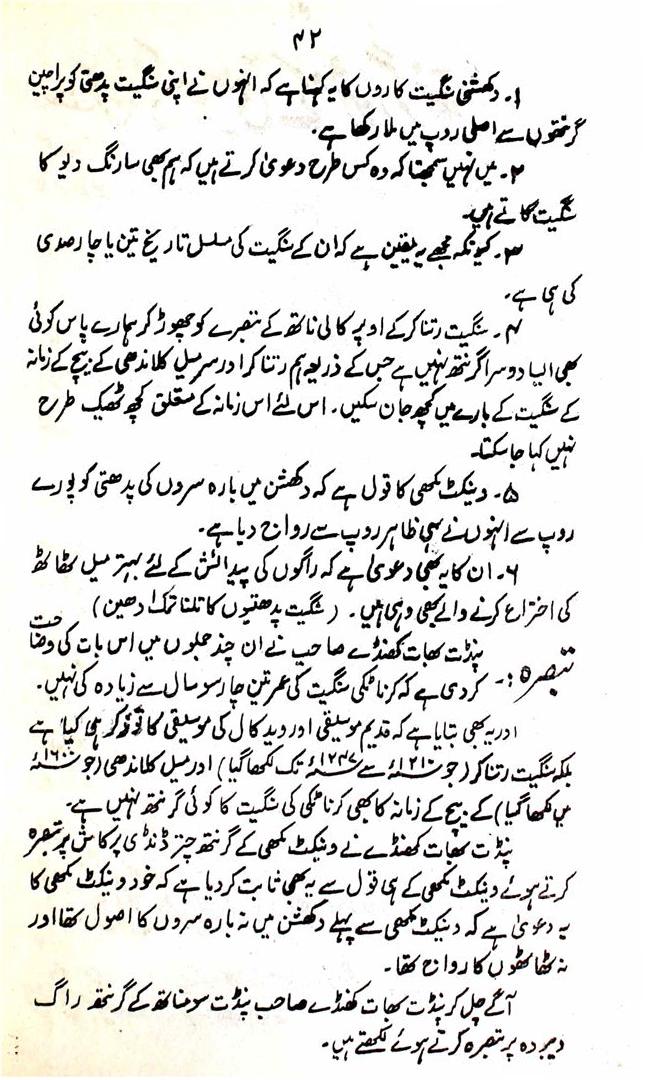 ۴۲
۱۔ دکھشنی سنگیت کاروں کا یہ کہنا ہے کہ انہوں نے اپنی سنگیت پدھتی کو پراچین
گرنتھوں سے اصلی روپ میں ملا رکھا ہے۔
۲۔ میں نہیں سمجھتا کہ وہ کس طرح دعویٰ کرتے ہیں کہ ہم بھی سارنگ دیو کا
سنگیت گاتے ہیں۔
۳۔ کیونکہ مجھے یہ یقین ہے کہ ان کے سنگیت کی مسلسل تاریخ تین یا چار صدی
کی ہی ہے۔
۴۔ سنگیت رتنا کر کے اوپر کالی ناتھ کے تبصرے کو چھوڑ کر ہمارے پاس کوئی
بھی ایسا دوسرا گرنتھ نہیں ہے جس کے ذریعہ ہم رتنا کر اور سرمیل کلاندھی کے بیچ کے زمانہ
کے سنگیت کے بارے میں کچھ جان سکیں۔ اس لئے اس زمانہ کے متعلق کچھ ٹھیک طرح
نہیں کہا جا سکتا۔
۵۔ وینکٹ مکھی کا قول ہے کہ دکھشن میں بارہ سروں کی پدھتی کو پورے
روپ سے انہوں نے ہی ظاہر روپ سے رواج دیا ہے۔
۶۔ ان کا یہ بھی دعویٰ ہے کہ راگوں کی پیدائش کے لئے بہتر میل ٹھاٹھ
کی اختراع کرنے والے بھی وہی ہیں۔ (سنگیت پدھتیوں کا تلنا تمک ادھین)
تبصرہ:۔ پنڈت بھات کھنڈے صاحب نے ان چند جملوں میں اس بات کی وضاحت
کر دی ہے کہ کرناٹکی سنگیت کی عمر تین چار سو سال سے زیادہ کی نہیں۔
اور یہ بھی بتایا ہے کہ قدیم موسیقی اور وید کال کی موسیقی کا تو ذکر ہی کیا ہے
بلکہ سنگیت رتنا کر (جو ۱۲۱۰ء سے ۱۲۴۷ء تک لکھا گیا) اور میل کلاندھی (جو ۱۶۰۰ء
میں لکھا گیا) کے بیچ کے زمانہ کا بھی کرناٹکی سنگیت کا کوئی گرنتھ نہیں ہے۔
پنڈت بھات کھنڈے نے وینکٹ مکھی کے گرنتھ چتر ڈنڈی پرکاش پر تبصرہ
کرتے ہوئے وینکٹ مکھی کے ہی قول سے یہ بھی ثابت کر دیا ہے کہ خود وینکٹ مکھی کا
یہ دعویٰ ہے کہ وینکٹ مکھی سے پہلے دکھشن میں نہ بارہ سروں کا اصول تھا اور
نہ ٹھاٹھوں کا رواج تھا۔
آگے چل کر پنڈت بھات کھنڈے صاحب پنڈت سومناتھ کے گرنتھ راگ
دیبودہ پر تبصرہ کرتے ہوئے لکھتے ہیں۔